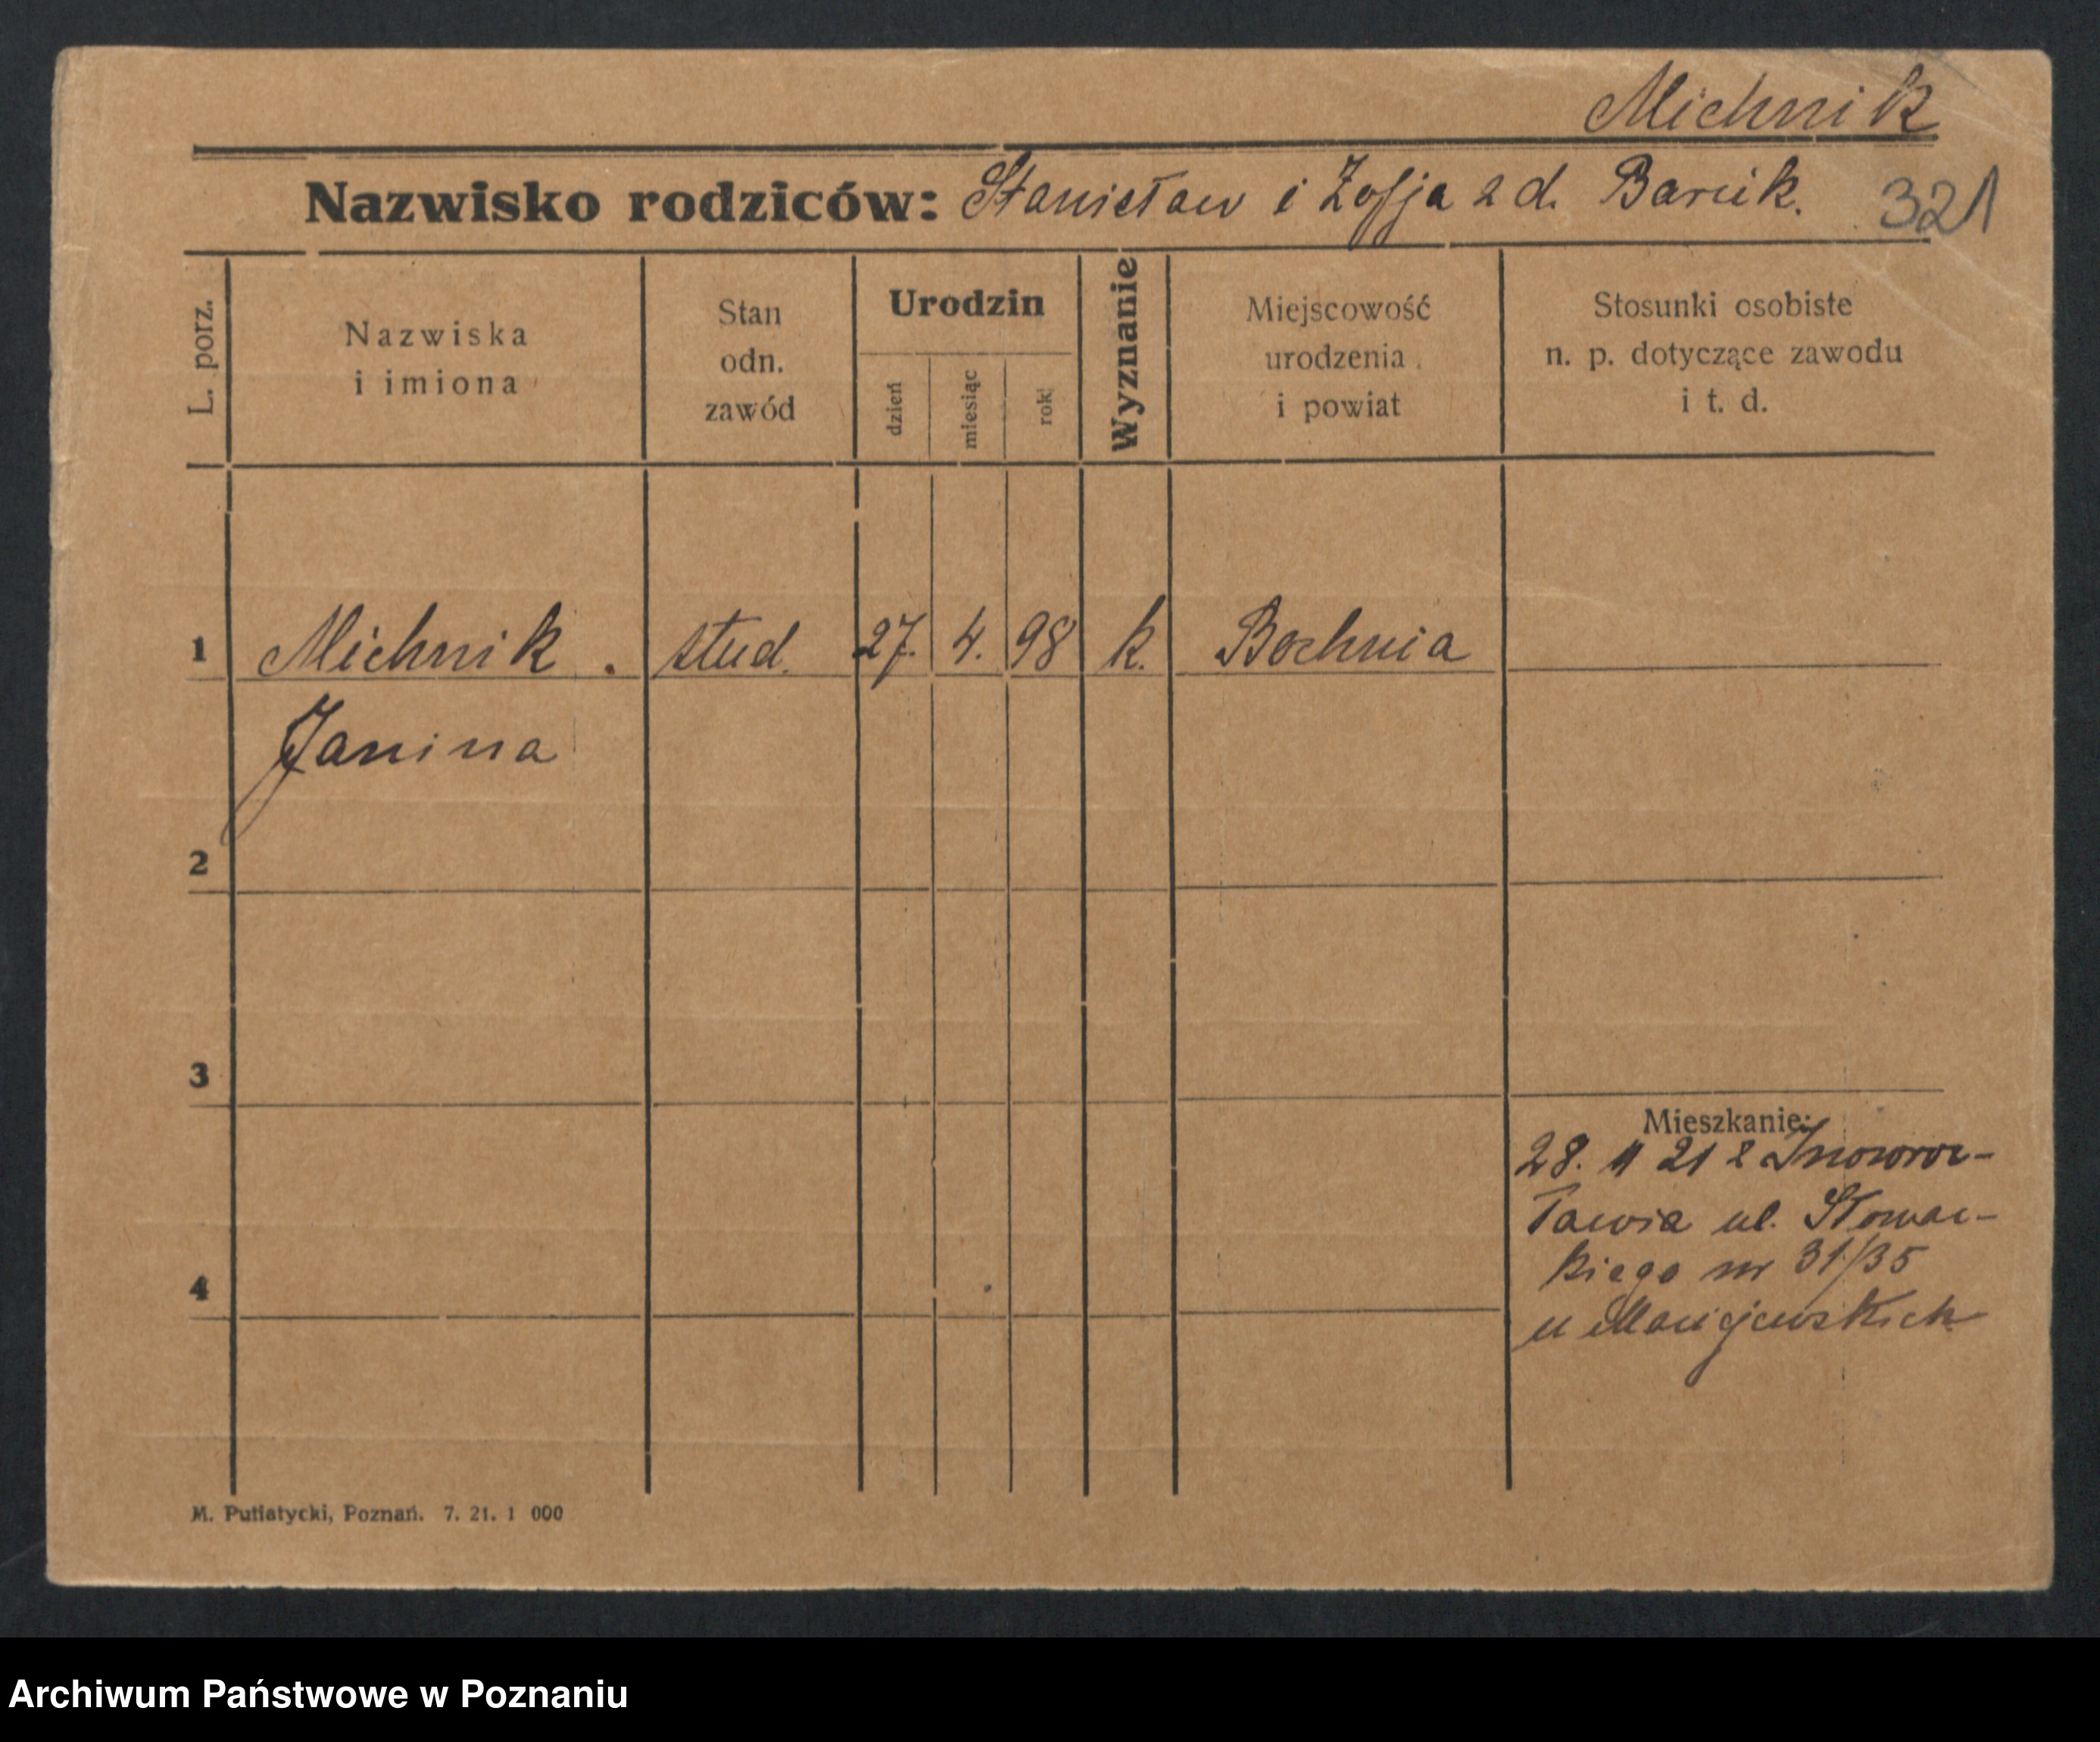 Michnik
Nazwisko rodziców: Stanisław i Zofja z d. 321
L. porz.
Nazwiska
i imiona
Stan
odn.
zawód
Urodzin
dzień
miesiąc
rok
Wyznanie
Miejscowość
urodzenia
i powiat
Stosunki osobiste
n. p. dotyczące zawodu
i t. d.
1 Michnik stud. 27. 4. 98 k. Bochnia
Janina
2
3
Mieszkanie:
28. 11 21 z Inowroc-
ławia ul. Słowac-
4 kiego nr 31/35
u Maciejewskich
M. Putiatycki, Poznań. 7. 21. 1 000
Archiwum Państwowe w Poznaniu